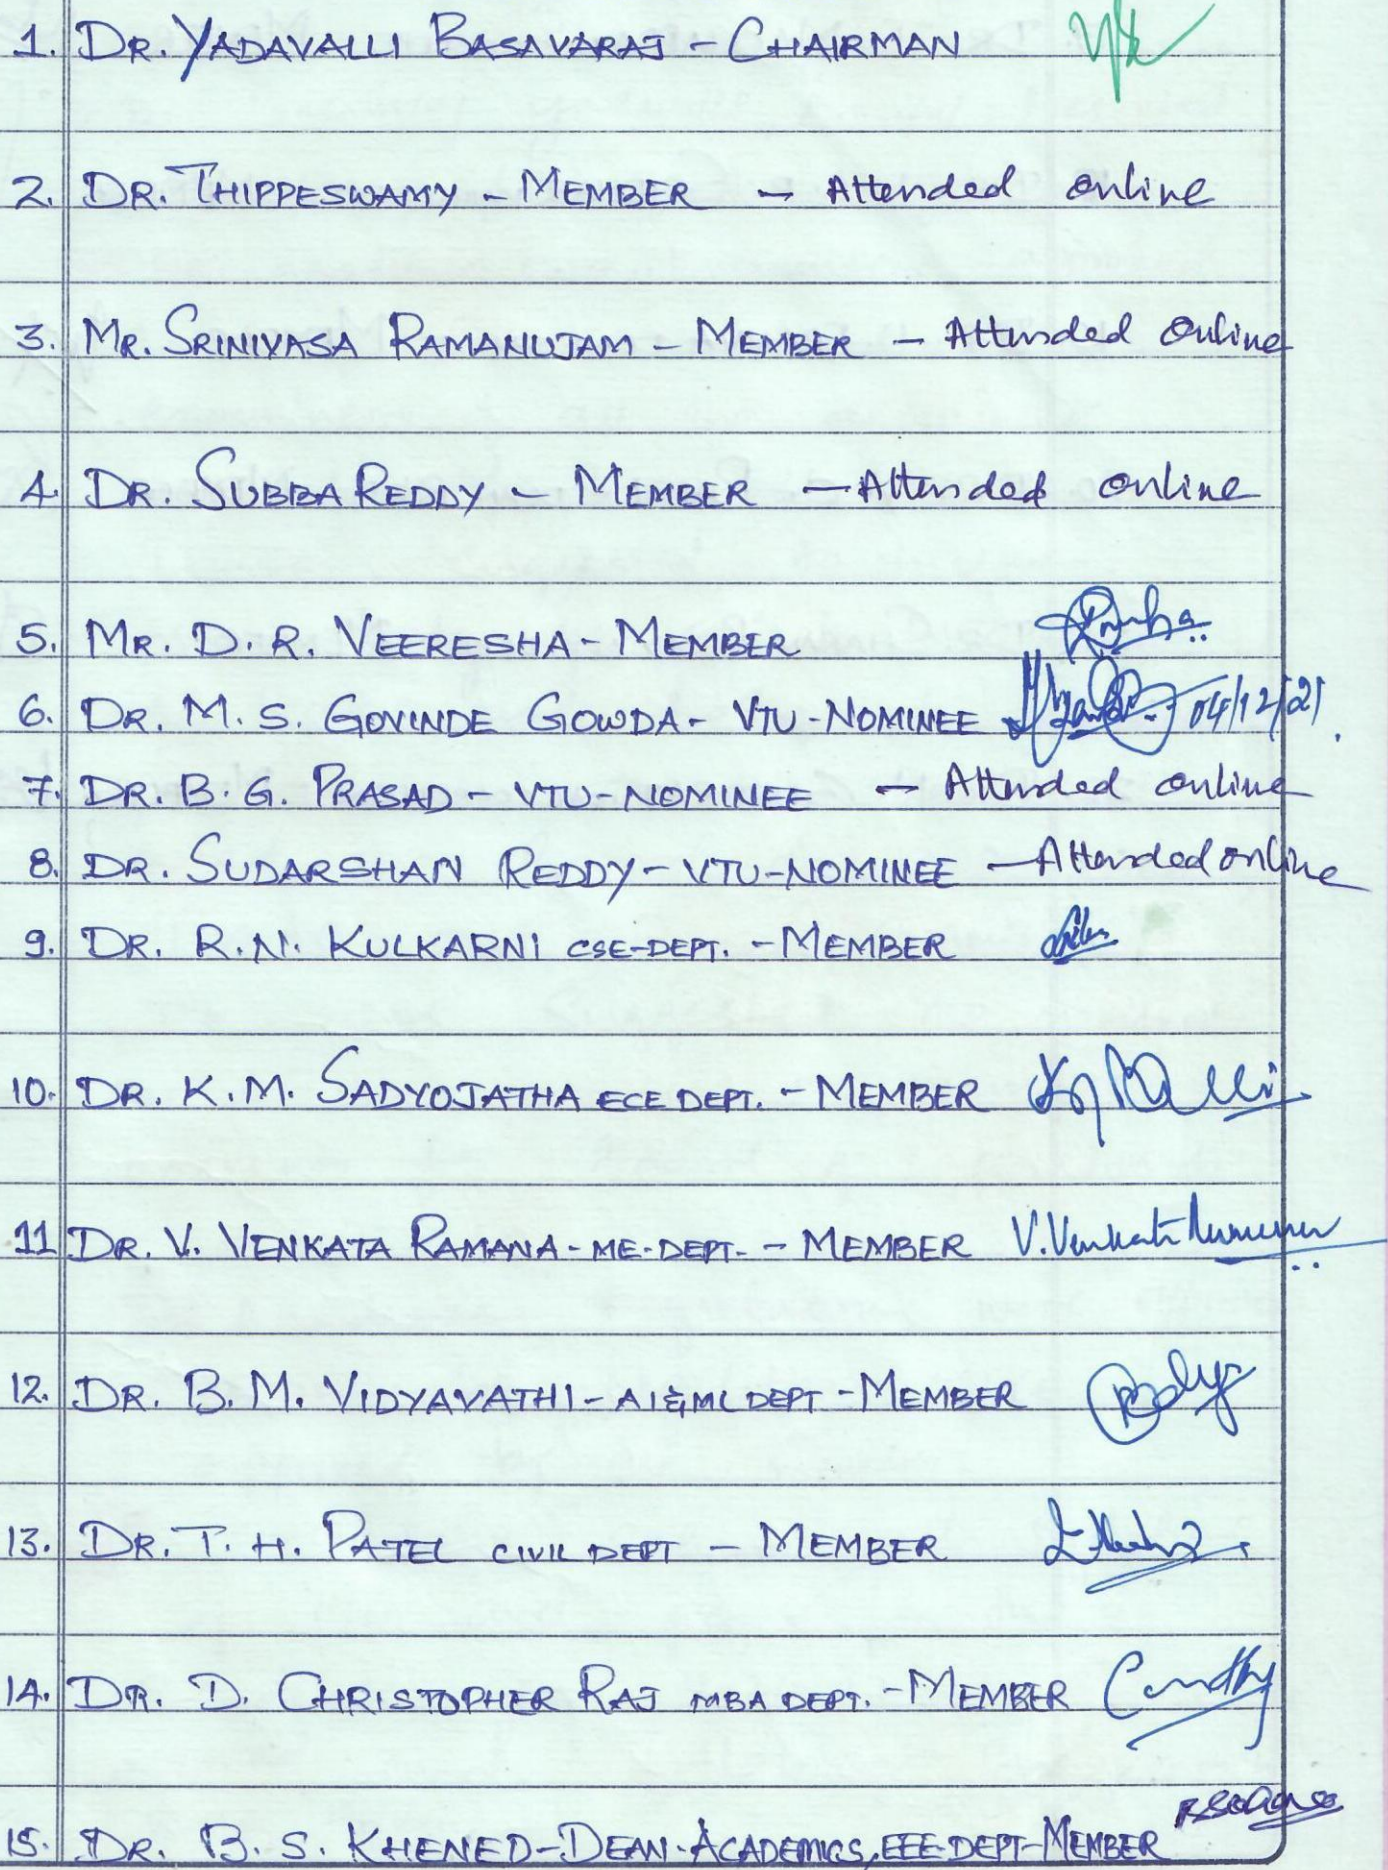 1. DR. YADAVALLI BASAVARAJ - CHAIRMAN
2. DR. THIPPESWAMY - MEMBER - Attended online
3. MR. SRINIVASA RAMANUJAM - MEMBER - Attended online
4. DR. SUBBA REDDY - MEMBER - Attended online
5. MR. D. R. VEERESHA - MEMBER
6. DR. M. S. GOVINDE GOWDA - VTU - NOMINEE 04/12/21
7. DR. B. G. PRASAD - VTU - NOMINEE - Attended online
8. DR. SUDARSHAN REDDY - VTU - NOMINEE - Attended online
9. DR. R. N. KULKARNI CSE-DEPT. - MEMBER
10. DR. K. M. SADYOJATHA ECE DEPT. - MEMBER
11 DR. V. VENKATA RAMANA - ME-DEPT. - MEMBER V. Venkata
12. DR. B. M. VIDYAVATHI - AI&ML DEPT - MEMBER
13. DR. T. H. PATEL CIVIL DEPT - MEMBER
14. DR. D. CHRISTOPHER RAJ MBA DEPT. - MEMBER
15. DR. B. S. KHENED - DEAN - ACADEMICS, EEE-DEPT - MEMBER